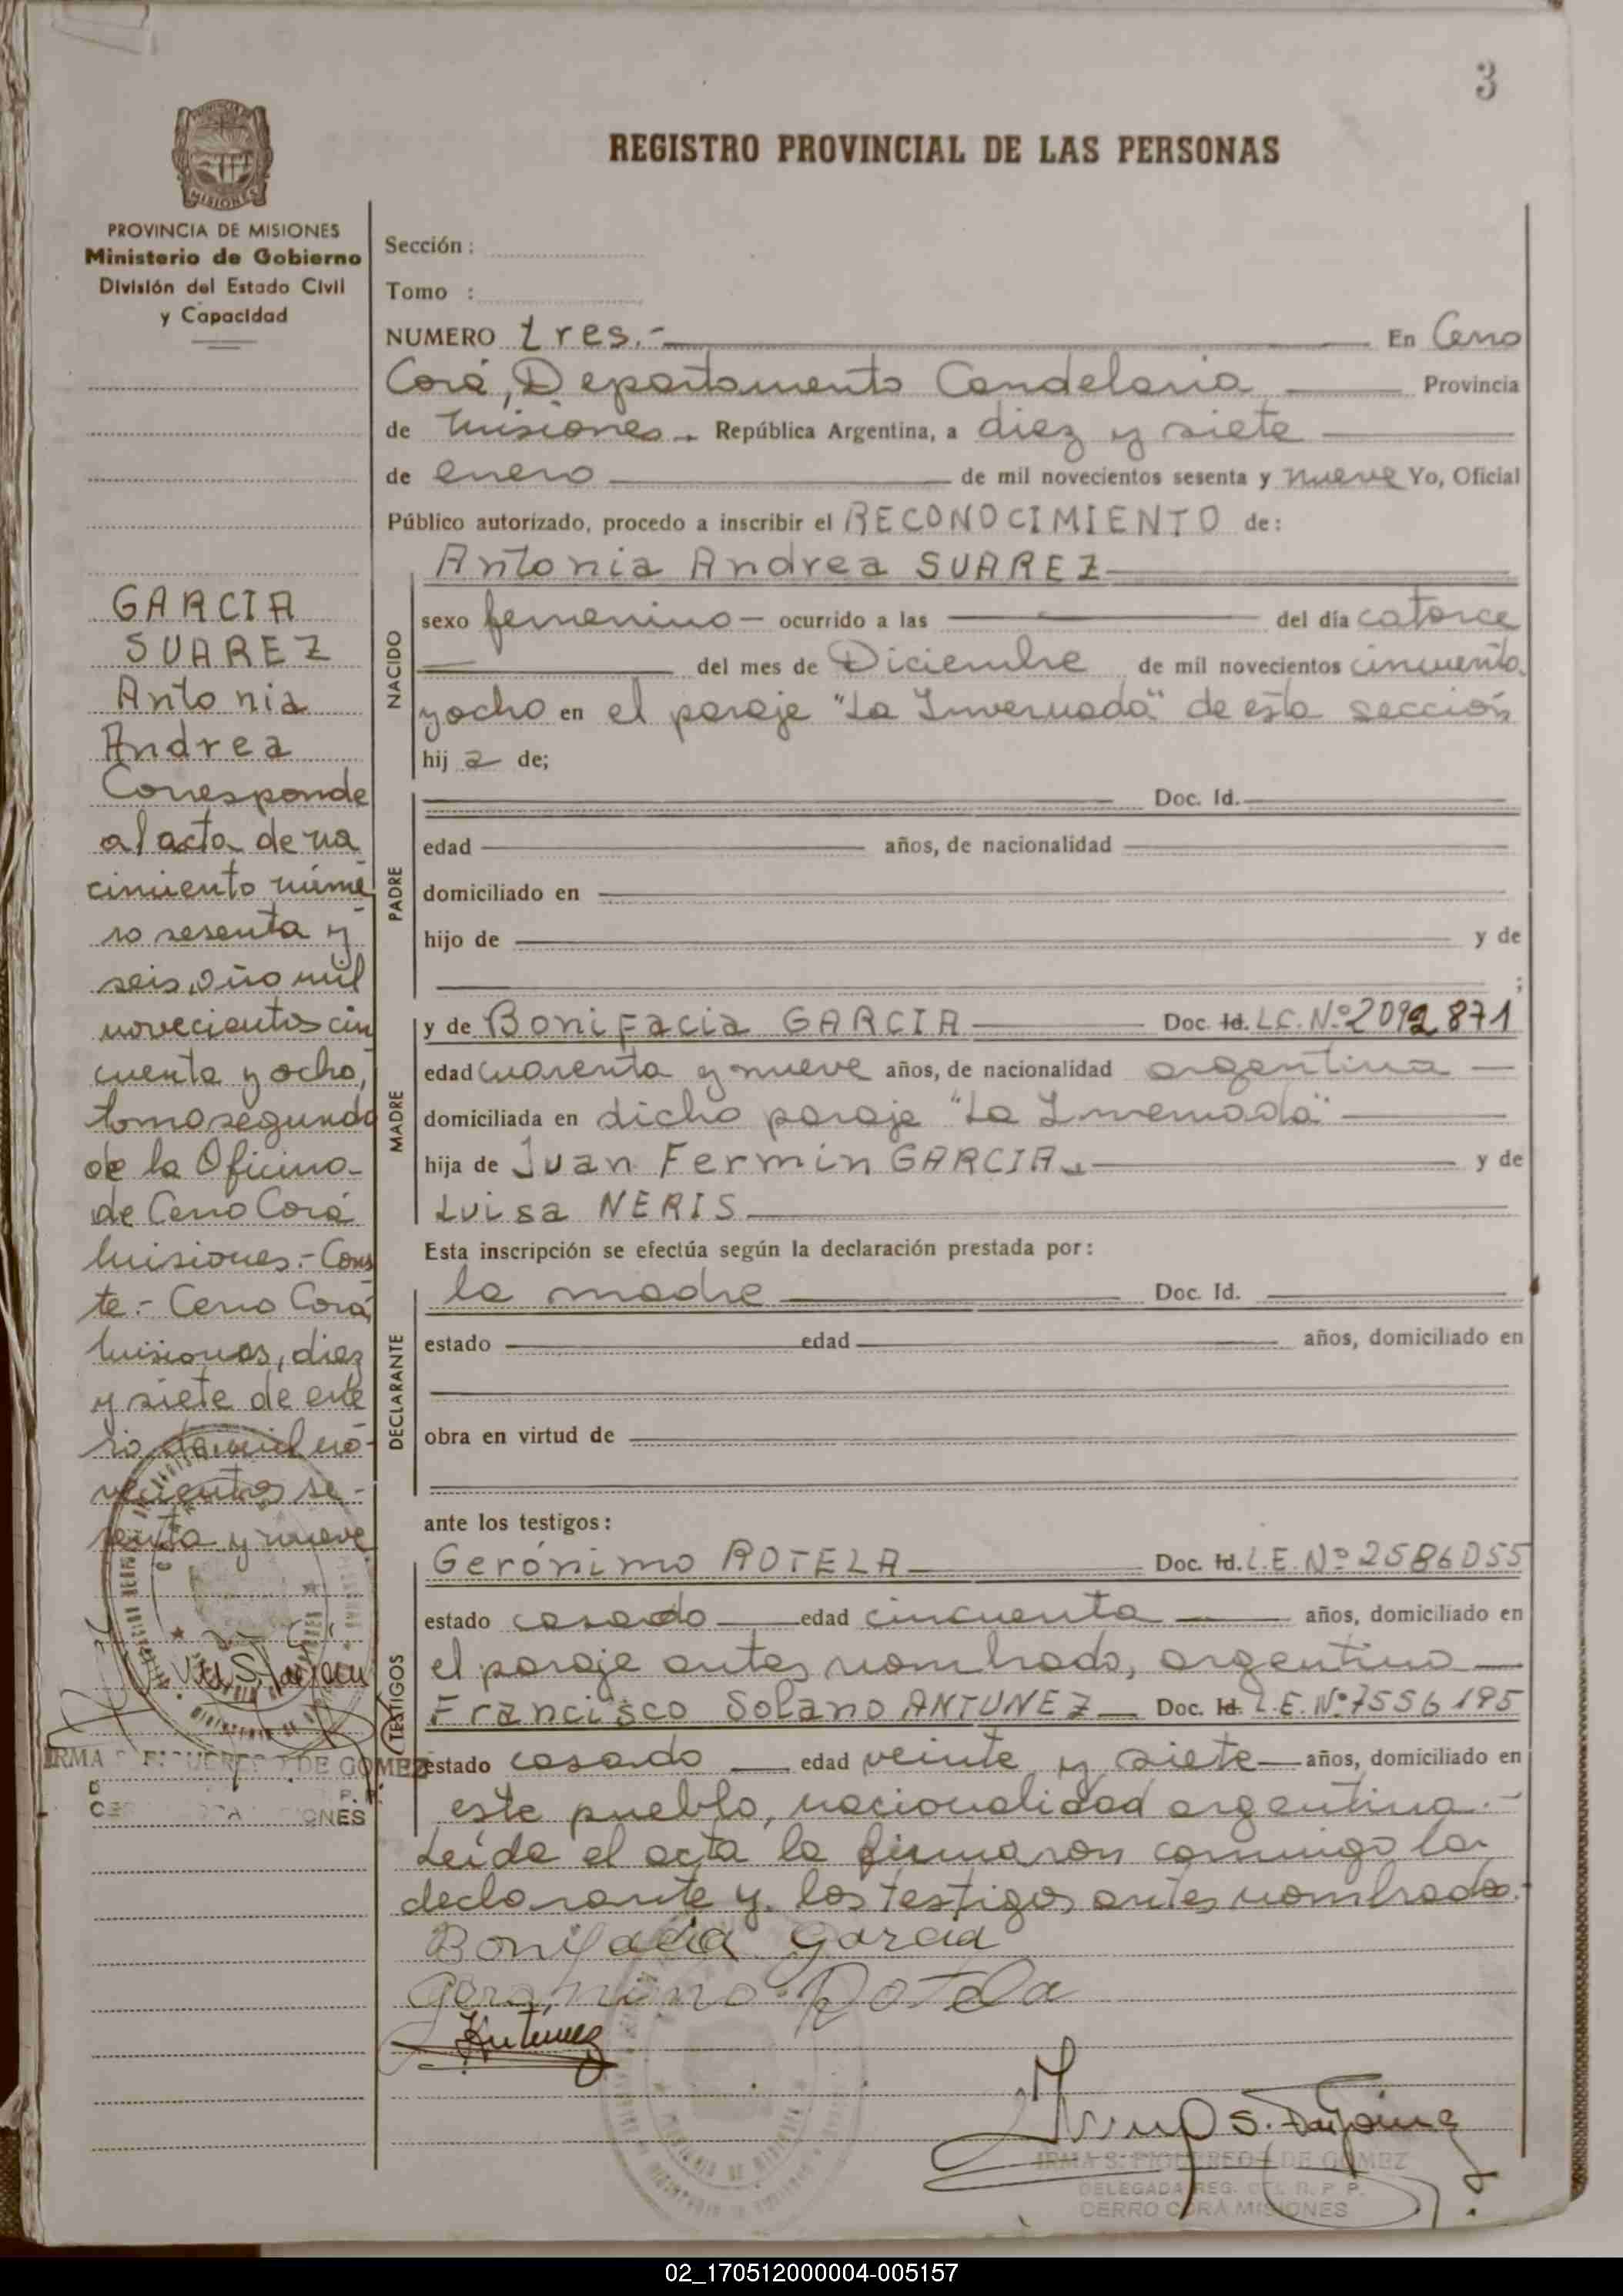 3
PROVINCIA DE MISIONES
Ministerio de Gobierno
División del Estado Civil
y Capacidad
REGISTRO PROVINCIAL DE LAS PERSONAS
Sección :
Tomo :
NUMERO tres.- En Cerro
Corá, Departamento Candelaria Provincia
de Misiones. República Argentina, a diez y siete
de enero de mil novecientos sesenta y nueve Yo, Oficial
Público autorizado, procedo a inscribir el RECONOCIMIENTO de:
Antonia Andrea SUAREZ
NACIDO
sexo femenino - ocurrido a las del día catorce
del mes de Diciembre de mil novecientos cincuenta
y ocho en el paraje "La Invernada" de esta sección
hij a de;
PADRE
Doc. Id.
edad años, de nacionalidad
domiciliado en
hijo de y de
;
MADRE
y de Bonifacia GARCIA Doc. Id. L.C. Nº 2092871
edad cuarenta y nueve años, de nacionalidad argentina
domiciliada en dicho paraje "La Invernada"
hija de Juan Fermin GARCIA y de
Luisa NERIS
Esta inscripción se efectúa según la declaración prestada por:
DECLARANTE
la madre Doc. Id.
estado edad años, domiciliado en
obra en virtud de
ante los testigos:
TESTIGOS
Gerónimo ROTELA Doc. Id. L.E. Nº 2586055
estado casado edad cincuenta años, domiciliado en
el paraje antes nombrado, argentino
Francisco Solano ANTUNEZ Doc. Id. L.E. Nº 7556195
estado casado edad veinte y siete años, domiciliado en
este pueblo, nacionalidad argentina.-
Leída el acta la firmaron conmigo la
declarante y los testigos antes nombrados.-
Bonifacia Garcia
Geronimo Rotela
Antunez
IRMA S. FIGUEREDO DE GOMEZ
DELEGADA REG. R. P. P.
CERRO CORÁ MISIONES
GARCIA
SUAREZ
Antonia
Andrea
Corresponde
al acta de na
cimiento núme
ro sesenta y
seis, año mil
novecientos cin
cuenta y ocho,
tomo segundo
de la Oficina
de Cerro Corá
Misiones.- Cons
te.- Cerro Corá
Misiones, diez
y siete de ene
ro de mil no-
vecientos se-
senta y nueve
IRMA S. FIGUEREDO DE GOMEZ
02_170512000004-005157